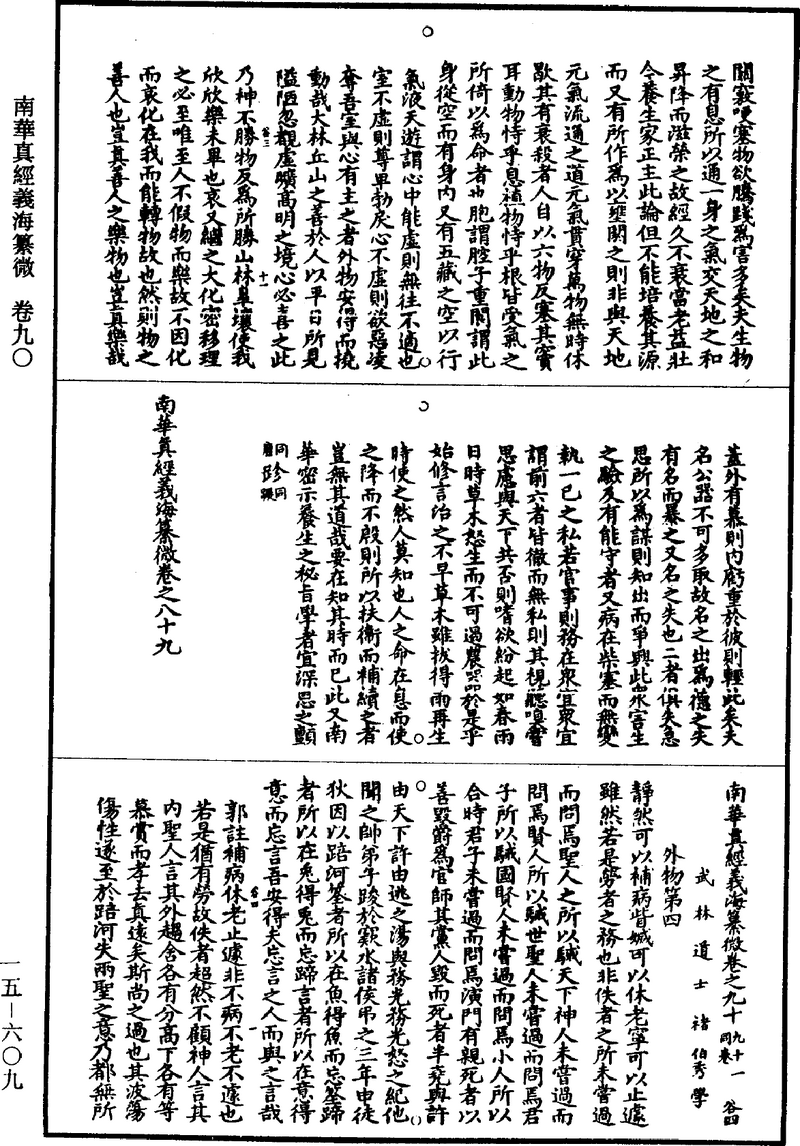 南華真經義海纂微　卷九〇
關竅哽塞物欲騰踐爲害多矣夫生物
之有息所以通一身之氣交天地之和
昇降而滋榮之故經久不衰當老益壯
今養生家正主此論但不能培養其源
而又有所作爲以壅閼之則非與天地
元氣流通之道元氣貫穿萬物無時休
歇其有衰殺者人自以六物反塞其竇
耳動物恃乎息植物恃乎根皆受氣之
所倚以爲命者也胞謂腔子重閬謂此
身從空而有身內又有五藏之空以行
氣液天遊謂心中能虛則無往不適也
室不虛則尊卑勃戾心不虛則欲惡凌
奪吾室與心有主之者外物安得而撓
動哉大林丘山之善於人以平日所見
隘陋忽觀虛曠高明之境心必喜之此
谷三
乃神不勝物反爲所勝山林臯壤使我
十一
欣欣樂未畢也哀又繼之大化密移理
之必至唯至人不假物而樂故不因化
而哀化在我而能轉物故也然則物之
善人也豈真善人之樂物也豈真樂哉
蓋外有慕則內虧重於彼則輕此矣夫
名公器不可多取故名之出爲德之失
有名而暴之又名之失也二者俱失急
思所以爲謀則知出而爭興此衆害生
之驗及有能守者又病在柴塞而無變
執一已之私若官事則務在衆宜衆宜
謂前六者皆徹而無私則其視聽嗅嘗
思慮與天下共否則嗜欲紛起如春雨
日時草木怒生而不可過農器於是乎
始修言治之不早草木雖拔得雨再生
時使之然人莫知也人之命在息而使
之降而不殷則所以扶衛而補續之者
豈無其道哉要在知其時而已此又南
華密示養生之秘旨學者宜深思之顫
南華真經義海纂微卷之八十九
南華真經義海纂微卷之九十
九十一同卷
谷四
武林道士褚伯秀學
外物第四
靜然可以補病眥㓕可以休老寧可以止遽
雖然若是勞者之務也非佚者之所未嘗過
而問焉聖人之所以駴天下神人未嘗過而
問焉賢人所以駴世聖人未嘗過而問焉君
子所以駴國賢人未嘗過而問焉小人所以
合時君子未嘗過而問焉演門有親死者以
善毀爵爲官師其黨人毀而死者半堯與許
由天下許由逃之湯與務光務光怒之紀他
聞之帥弟子踆於窾水諸侯弔之三年申徒
狄因以踣河筌者所以在魚得魚而忘筌蹄
者所以在兎得兎而忘蹄言者所以在意得
意而忘言吾安得夫忘言之人而與之言哉
谷四
一
郭註補病休老止遽非不病不老不遽也
若是猶有勞故佚者超然不顧神人言其
內聖人言其外趨舍各有分高下各有等
慕賞而孝去真遠矣斯尚之過也其波蕩
傷性遂至於踣河失兩聖之意乃都無所
一五－六〇九